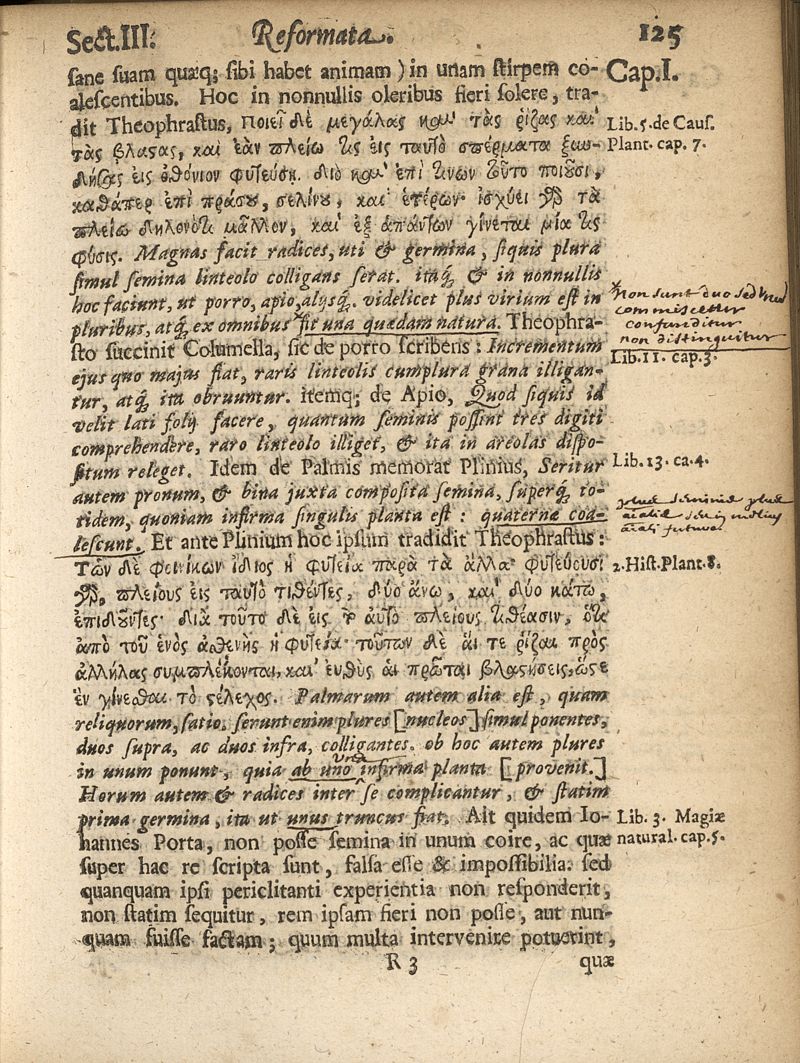 Sect. III. Reformata. 125
sane suam quæq; sibi habet animam) in unam stirpem co- Cap. I.
alescentibus. Hoc in nonnullis oleribus fieri solere, tra-
dit Theophrastus, ποιεῖ δὲ μεγάλας καὶ τὰς ῥίζας καὶ Lib. 5. de Caus.
τὰς βλαςας, καὶ ἐὰν πλείω τις εἰς ταυτὸ σπέρματα ξυν- Plant. cap. 7.
δήσας εἰς ὀθόνιον φυτεύσῃ. διὸ καὶ ἐπί τινων τοῦτο ποιοῦσι,
καθάπερ ἐπὶ πράσου, σελίνου, καὶ ἑτέρων· ἰσχύει γὰρ τὰ
πλείω δηλονότι μᾶλλον, καὶ ἐξ ἁπάντων γίνεται μία τις
φύσις. Magnas facit radices, uti & germina, siquis plura
simul semina linteolo colligans serat. itaq; & in nonnullis
hoc faciunt, ut porro, apio, alijsq;. videlicet plus virium est in Non sunt duo sed
pluribus, atq; ex omnibus fit una quædam natura. Theophra- commiscetur
confunditur
non distinguitur
sto succinit Columella, sic de porro scribens: Incrementum Lib. 11. cap. 3.
ejus quo majus fiat, raris linteolis cumplura grana illigan-
tur, atq; ita obruuntur. itemq; de Apio, Quod siquis id
velit lati folij facere, quantum seminis possint tres digiti
comprehendere, raro linteolo illiget, & ita in areolas dispo-
situm releget. Idem de Palmis memorat Plinius, Seritur Lib. 13. ca. 4.
autem pronum, & bina juxta composita semina, superq; to-
tidem, quoniam infirma singulis planta est: quaternæ coa-
lescunt. Et ante Plinium hoc ipsum tradidit Theophrastus:
Τῶν δὲ φοινίκων ἴδιος ἡ φυτεία παρὰ τὰ ἄλλα· φυτεύουσι 2. Hist. Plant. 8.
γὰρ, πλείους εἰς ταυτὸ τιθέντες, δύο ἄνω, καὶ δύο κάτω,
ἐπιδοῦντες· διὰ τοῦτο δὲ εἰς τ αὐτὸ πλείους τιθέασιν, ὅτι
ἀπὸ τοῦ ἑνὸς ἀσθενὴς ἡ φυτεία· τούτων δὲ ἅι τε ῥίζαι πρὸς
ἀλλήλας συμπλέκονται, καὶ ἐυθὺς ἁι πρῶται βλαςήσεις, ὥςε
ἐν γίνεσθαι τὸ ςέλεχος. Palmarum autem alia est, quam
reliquorum, satio. serunt enim plures [nucleos] simul ponentes,
duos supra, ac duos infra, colligantes. ob hoc autem plures
in unum ponunt, quia ab uno infirma planta [provenit.]
Horum autem & radices inter se complicantur, & statim
prima germina, ita ut unus truncus fiat. Ait quidem Io- Lib. 3. Magiæ
hannes Porta, non posse semina in unum coire, ac quæ natural. cap. 5.
super hac re scripta sunt, falsa esse & impossibilia. sed
quanquam ipsi periclitanti experientia non responderit,
non statim sequitur, rem ipsam fieri non posse, aut nun-
quam fuisse factam; quum multa intervenire potuerint,
R 3 quæ